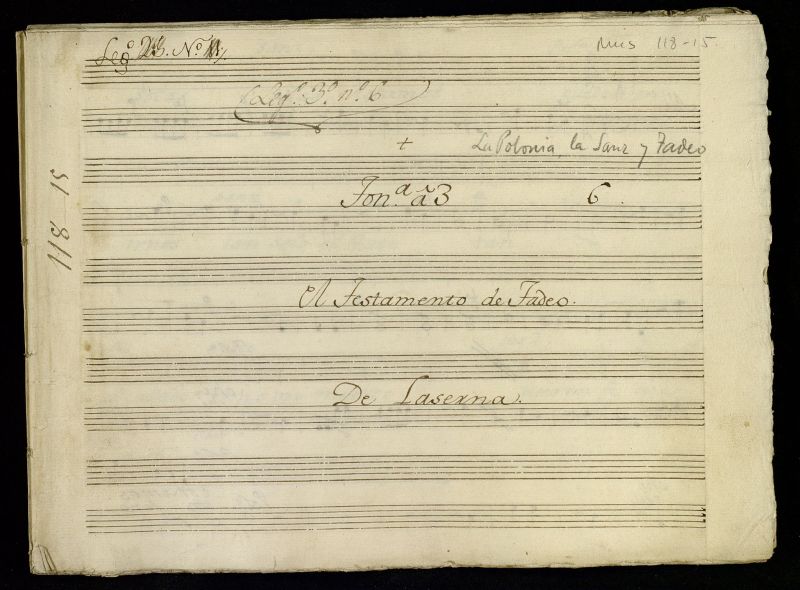 Leg.º No.
Mus 118-15.
(Leg.º 3.º n.º 6
+
La Polonia, la Sanz y Tadeo
118-15
Ton.ª a 3 6.
El Testamento de Tadeo.
De Laserna.